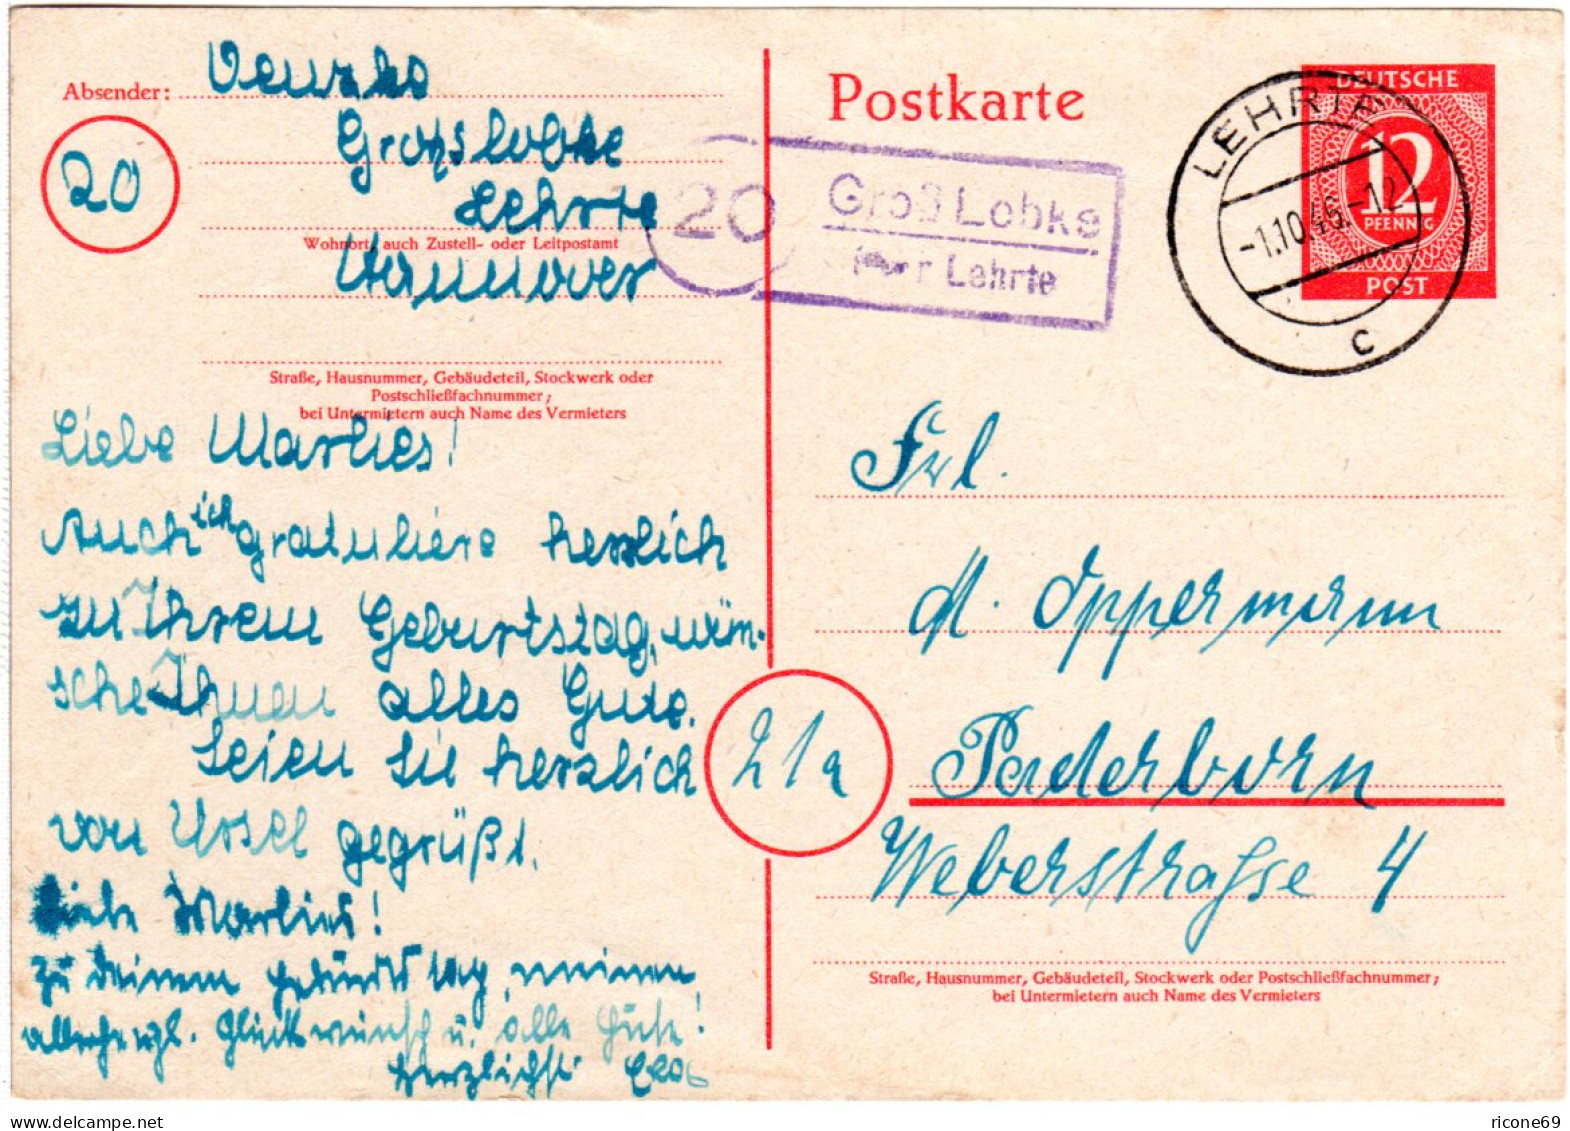 Absender:
20
Grosslobke
Lehrte
Wohnort, auch Zustell- oder Leitpostamt
Hannover
Straße, Hausnummer, Gebäudeteil, Stockwerk oder
Postschließfachnummer;
bei Untermietern auch Name des Vermieters
Liebe Marlies!
Auch ich gratuliere herzlich
zu Ihrem Geburtstag, wün-
sche Ihnen alles Gute.
Seien Sie herzlich
von Ussel gegrüßt.
Liebe Marlies!
Zu Deinem Geburtstag meinen
allerherzl. Glückwunsch u. alle Gute!
Herzlichst
Postkarte
20 Groß Lobke
über Lehrte
LEHRTE
-1.10.46.-12
c
DEUTSCHE
12
PFENNIG
POST
Frl.
M. Oppermann
21a
Paderborn
Weberstrasse 4
Straße, Hausnummer, Gebäudeteil, Stockwerk oder Postschließfachnummer;
bei Untermietern auch Name des Vermieters
ricone69